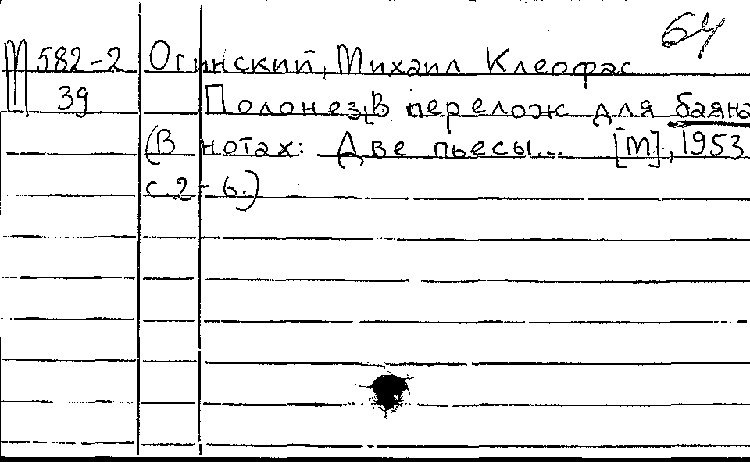 64
М 582-2 Огинский, Михаил Клеофас
39 Полонез, В перелож для баяна
(В нотах: Две пьесы... [М], 1953.
с. 2-6.)